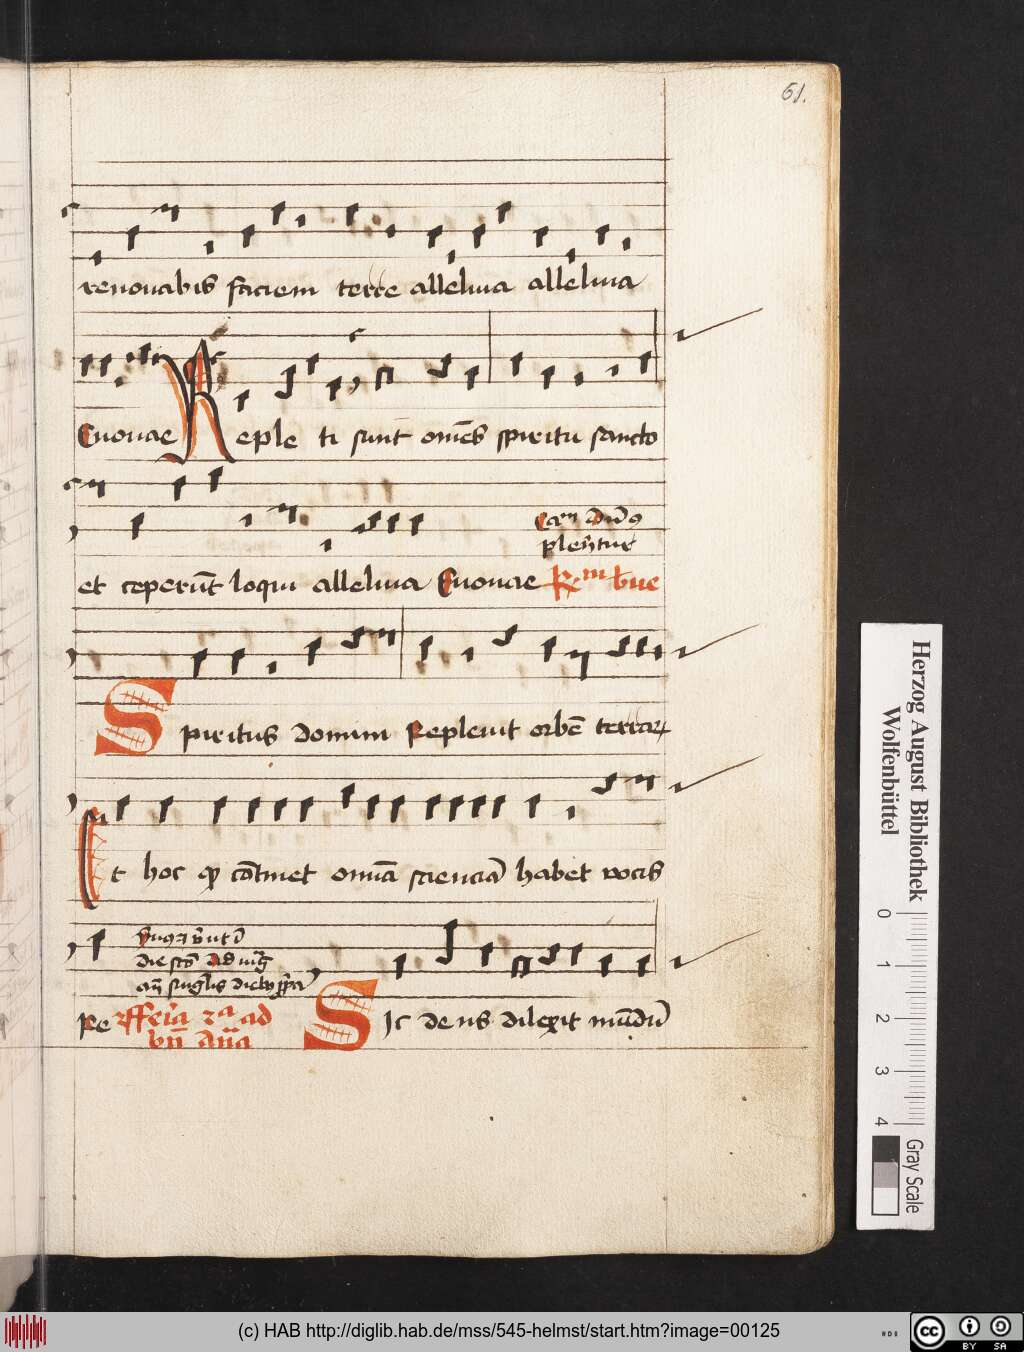 61.
renouabis faciem terre alleluia alleluia
Euouae Reple ti sunt om̄es spiritu sancto
et ceperūt loqui alleluia Euouae
Spiritus domini Repleuit orbē terrar
Et hoc qͥ cōtinet omīa scienciā habet vocis
Re
ad
Sic deus dilexit mūdū
Herzog August Bibliothek
Wolfenbüttel
0 1 2 3 4
Gray Scale
(c) HAB http://diglib.hab.de/mss/545-helmst/start.htm?image=00125
cc BY SA